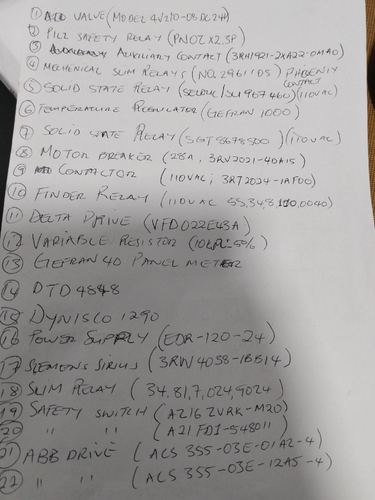 ① VALVE (MODEL 4V210-08 DC24V)
② PILZ SAFETY RELAY (PNOZ X2.5P)
③ AUXILIARY CONTACT (3RH1921-2XA22-0MA0)
④ MECHENICAL SLIM RELAYS (NO. 2961105) PHOENIX CONTACT
⑤ SOLID STATE RELAY (SELDUC/SU967460) (110VAC)
⑥ TEMPERATURE REGULATOR (GEFRAN 1000)
⑦ SOLID STATE RELAY (SGT8678500) (110VAC)
⑧ MOTOR BREAKER (28A, 3RV2021-4NA15)
⑨ CONTACTOR (110VAC; 3RT2024-1AF00)
⑩ FINDER RELAY (110VAC 55,34,8,110,0040)
⑪ DELTA DRIVE (VFD022E43A)
⑫ VARIABLE RESISTOR (5%)
⑬ GEFRAN 40 PANEL METER
⑭ DTD4848
⑮ DYNISCO 1290
⑯ POWER SUPPLY (EDR-120-24)
⑰ SIEMENS SIRIUS (3RW4038-1BB14)
⑱ SLIM RELAY (34.81,7,024,9024)
⑲ SAFETY SWITCH (AZ16 ZVRK-M20)
⑳ " " (
21 ABB DRIVE (ACS 355-03E-01A2-4)
22 " " (ACS 355-03E-12A5-4)